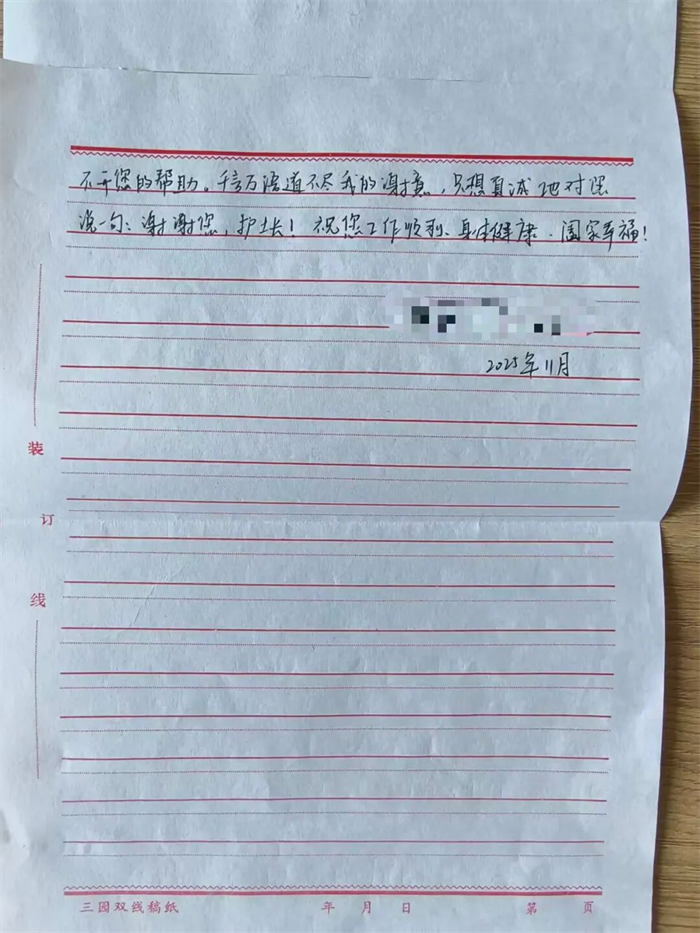 不开您的帮助。千言万语道不尽我的谢意，只想真诚地对您
说一句：谢谢您，护士长！祝您工作顺利、身体健康、阖家幸福！
2025年11月
装
订
线
三园双线稿纸 年 月 日 第 页